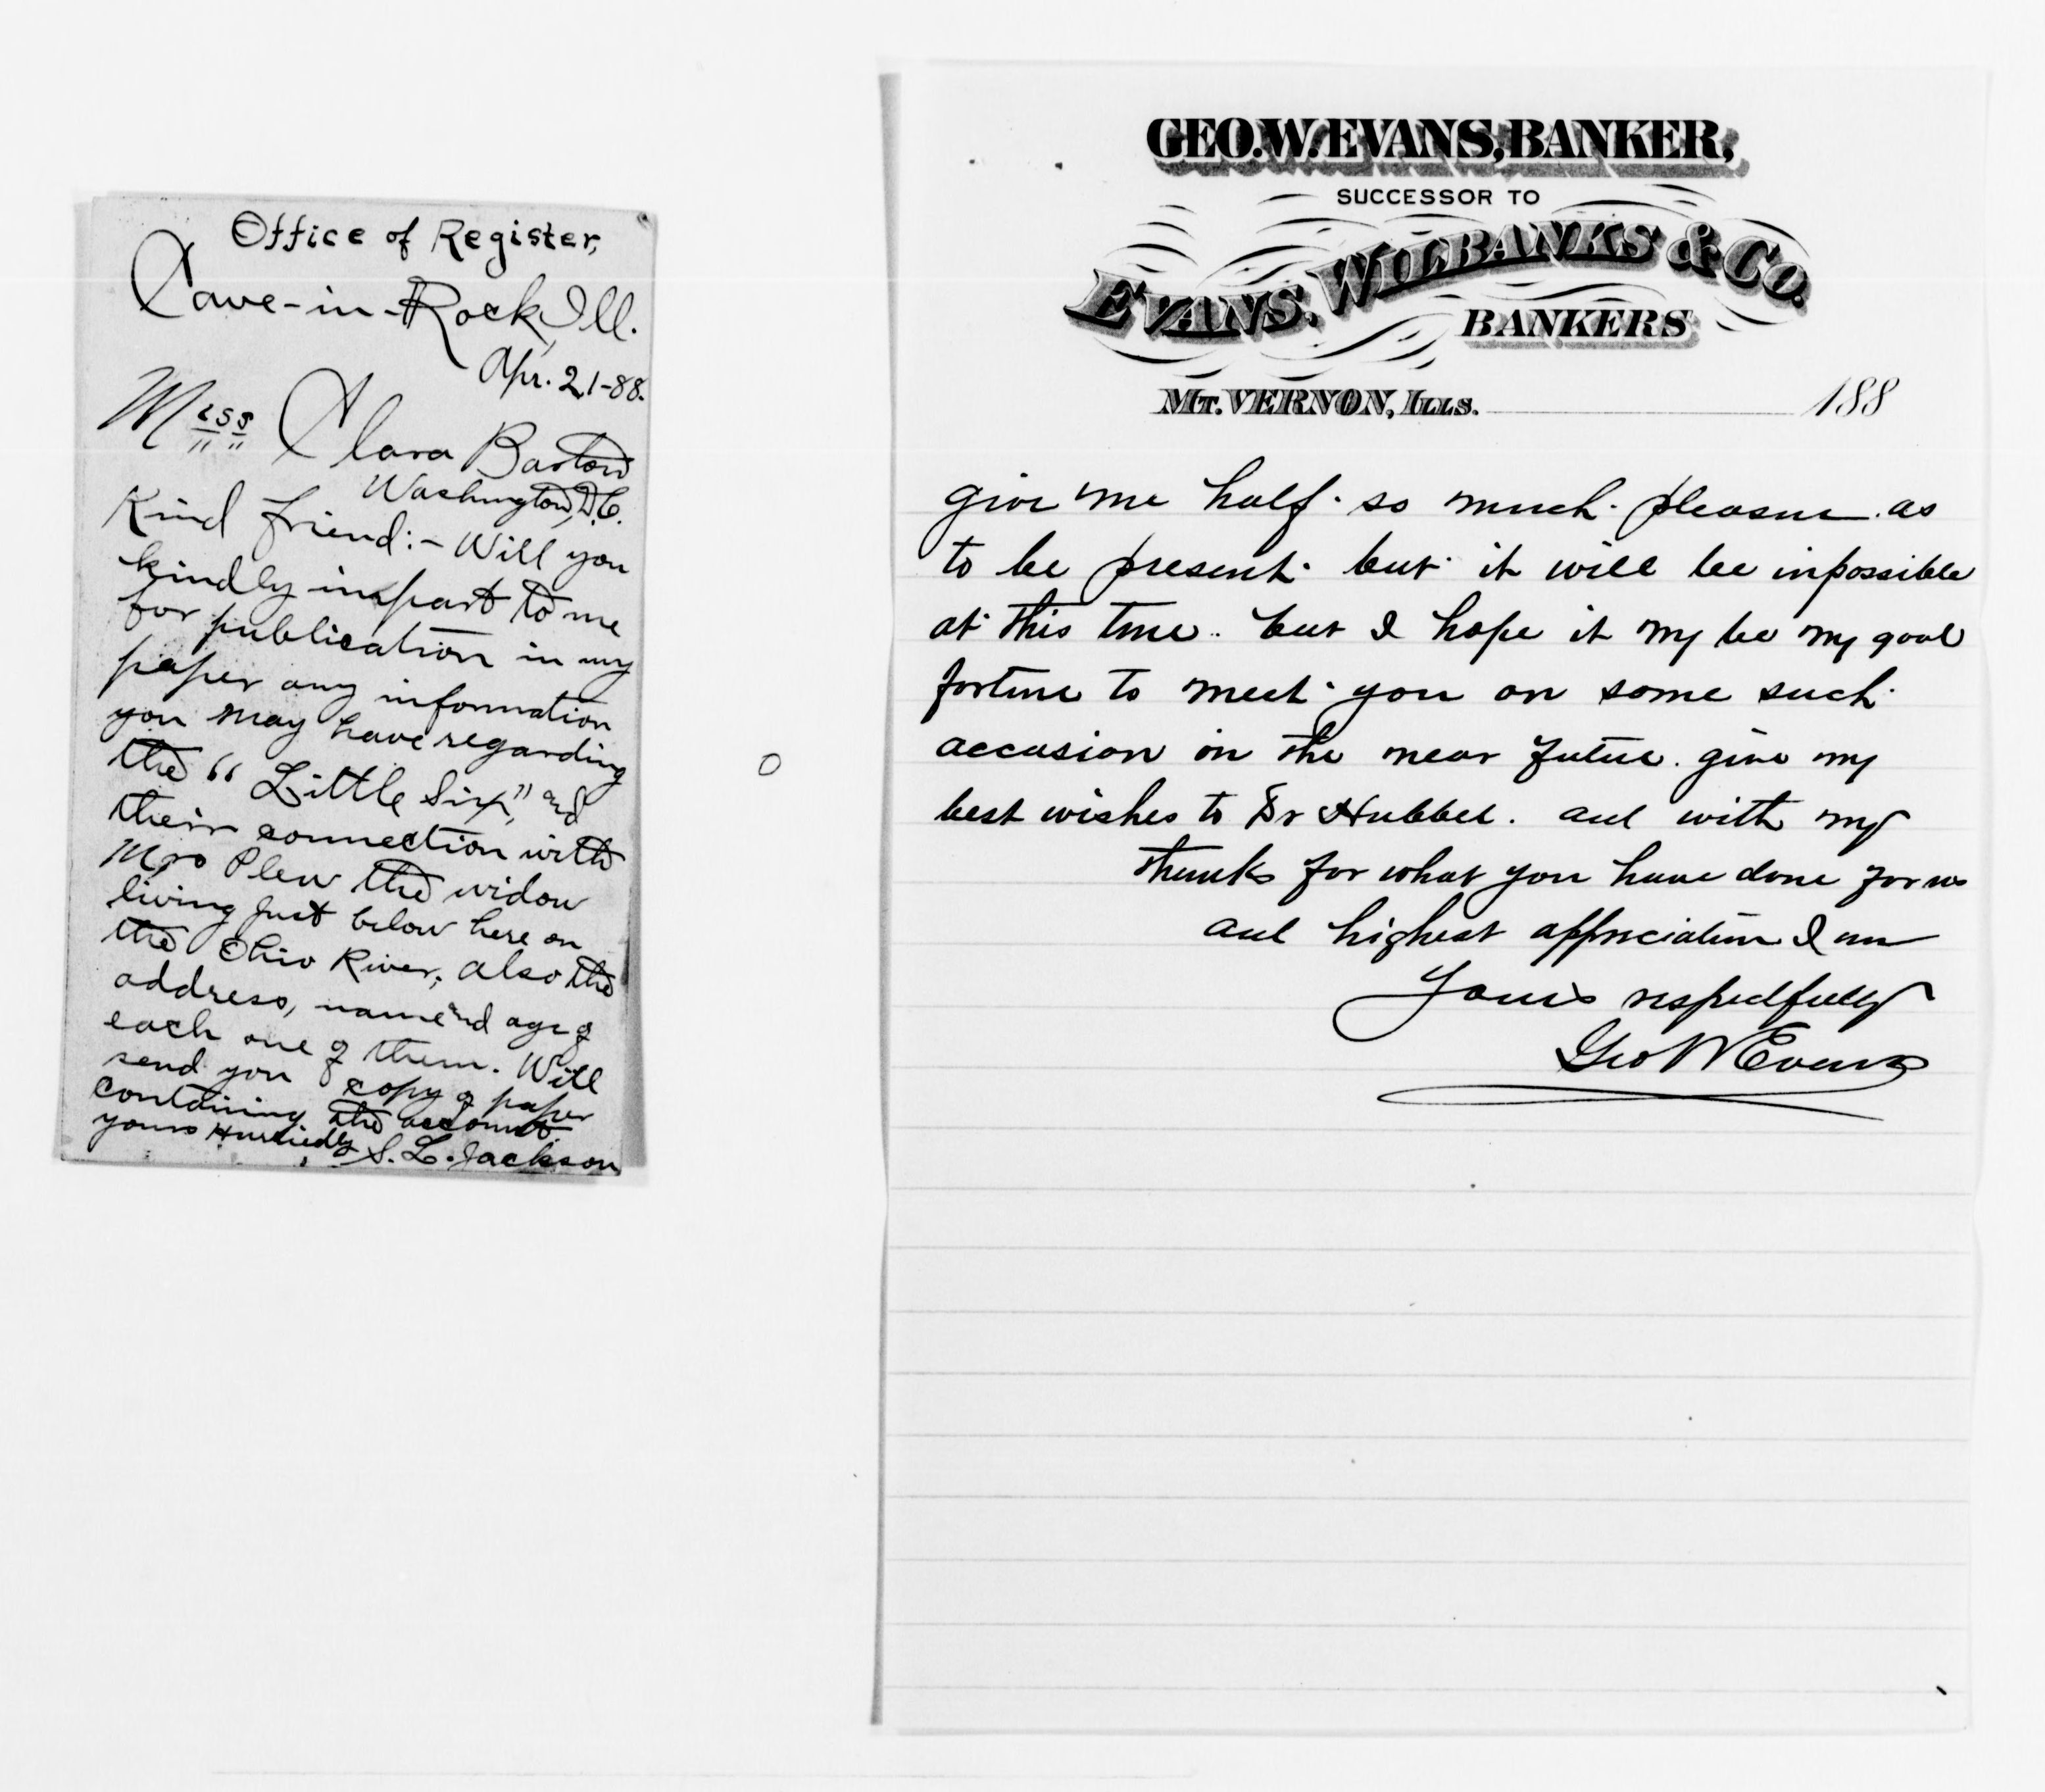 Office of Register,
Cave-in-Rock, Ill.
Apr. 21-88.
Miss Clara Barton
Washington, D.C.
Kind friend:- Will you
kindly impart to me
for publication in my
paper any information
you may have regarding
the "Little Six," and
their connection with
Mrs Plew the widow
living just below here on
the Ohio River; also the
address, name and age of
each one of them. Will
send you copy of paper
containing the account.
yours Hurriedly S. L. Jackson
GEO. W. EVANS, BANKER,
SUCCESSOR TO
EVANS, WILBANKS & CO.
BANKERS
MT. VERNON, ILLS. 188
give me half so much pleasure as
to be present but it will be inpossible
at this time.. but I hope it my be my good
fortune to meet you on some such
accasion in the near future. give my
best wishes to Dr Hubbel. and with my
thanks for what you have done for us
and highest appreciation I am
Yours respectfully
Geo W Evans